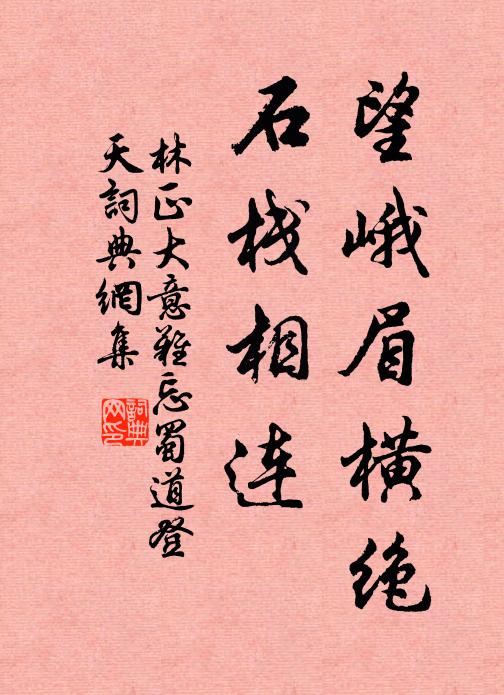 望峨眉横绝
石栈相连
林正大意难忘蜀道登
天词典網集
詞典
网印